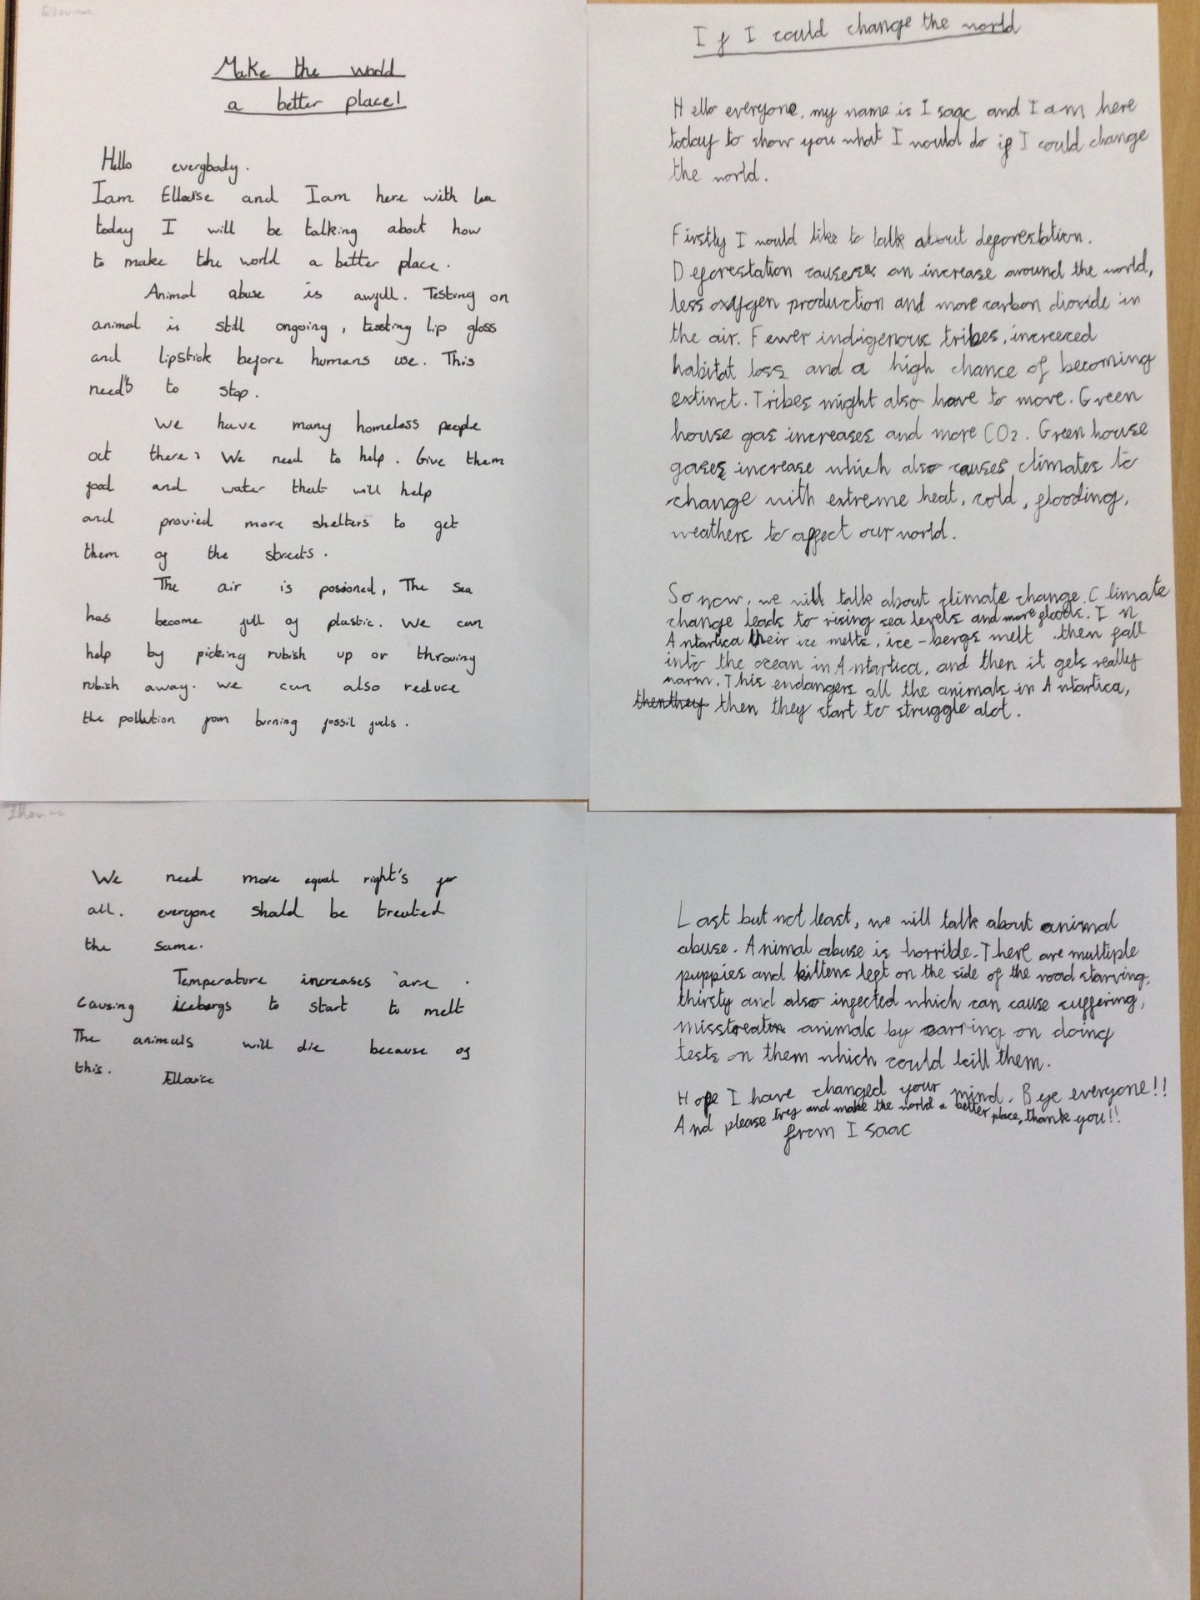 Make the world
a better place!
Hello everybody.
I am Ellouise and I am here with
today I will be talking about how
to make the world a better place.
Animal abuse is awfull. Testing on
animal is still ongoing, testing lip gloss
and lipstick before humans use. This
need's to stop.
We have many homeless people
out there. We need to help. Give them
food and water that will help
and provied more shelters to get
them of the streets.
The air is posioned, The sea
has become full of plastic. We can
help by picking rubish up or throwing
rubish away. We can also reduce
the pollution from burning fossil fuels.
We need more equal right's for
all. everyone should be treated
the same.
Temperature increases are
causing icebergs to start to melt
The animals will die because of
this.
If I could change the world
Hello everyone, my name is Isaac and I am here
today to show you what I would do if I could change
the world.
Firstly I would like to talk about deforestation.
Deforestation causes an increase around the world,
less oxygen production and more carbon dioxide in
the air. Fewer indigenous tribes, increeced
habitat loss and a high chance of becoming
extinct. Tribes might also have to move. Green
house gas increases and more CO2. Green house
gases increase which also causes climates to
change with extreme heat, cold, flooding,
weathers to affect our world.
So now, we will talk about climate change. Climate
change leads to rising sea levels and more floods. In
Antartica their ice melts, ice-bergs melt then fall
into the ocean in Antartica, and then it gets really
warm. This endangers all the animals in Antartica,
then they start to struggle alot.
Last but not least, we will talk about animal
abuse. Animal abuse is horrible. There are multiple
puppies and kittens left on the side of the road starving,
thirsty and also infected which can cause suffering,
animals by carring on doing
tests on them which could kill them.
Hope I have changed your mind. Bye everyone!!
And please try and make the world a better place, thank you!!
from Isaac